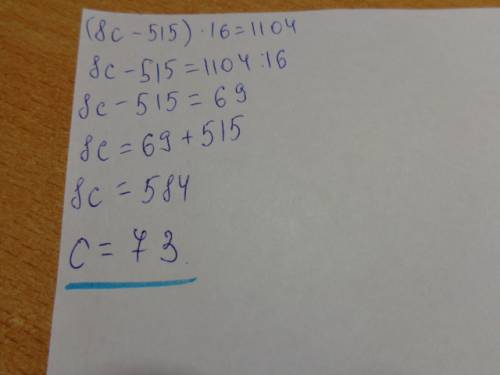 (8c - 515) · 16 = 1104
8c - 515 = 1104 : 16
8c - 515 = 69
8c = 69 + 515
8c = 584
c = 73